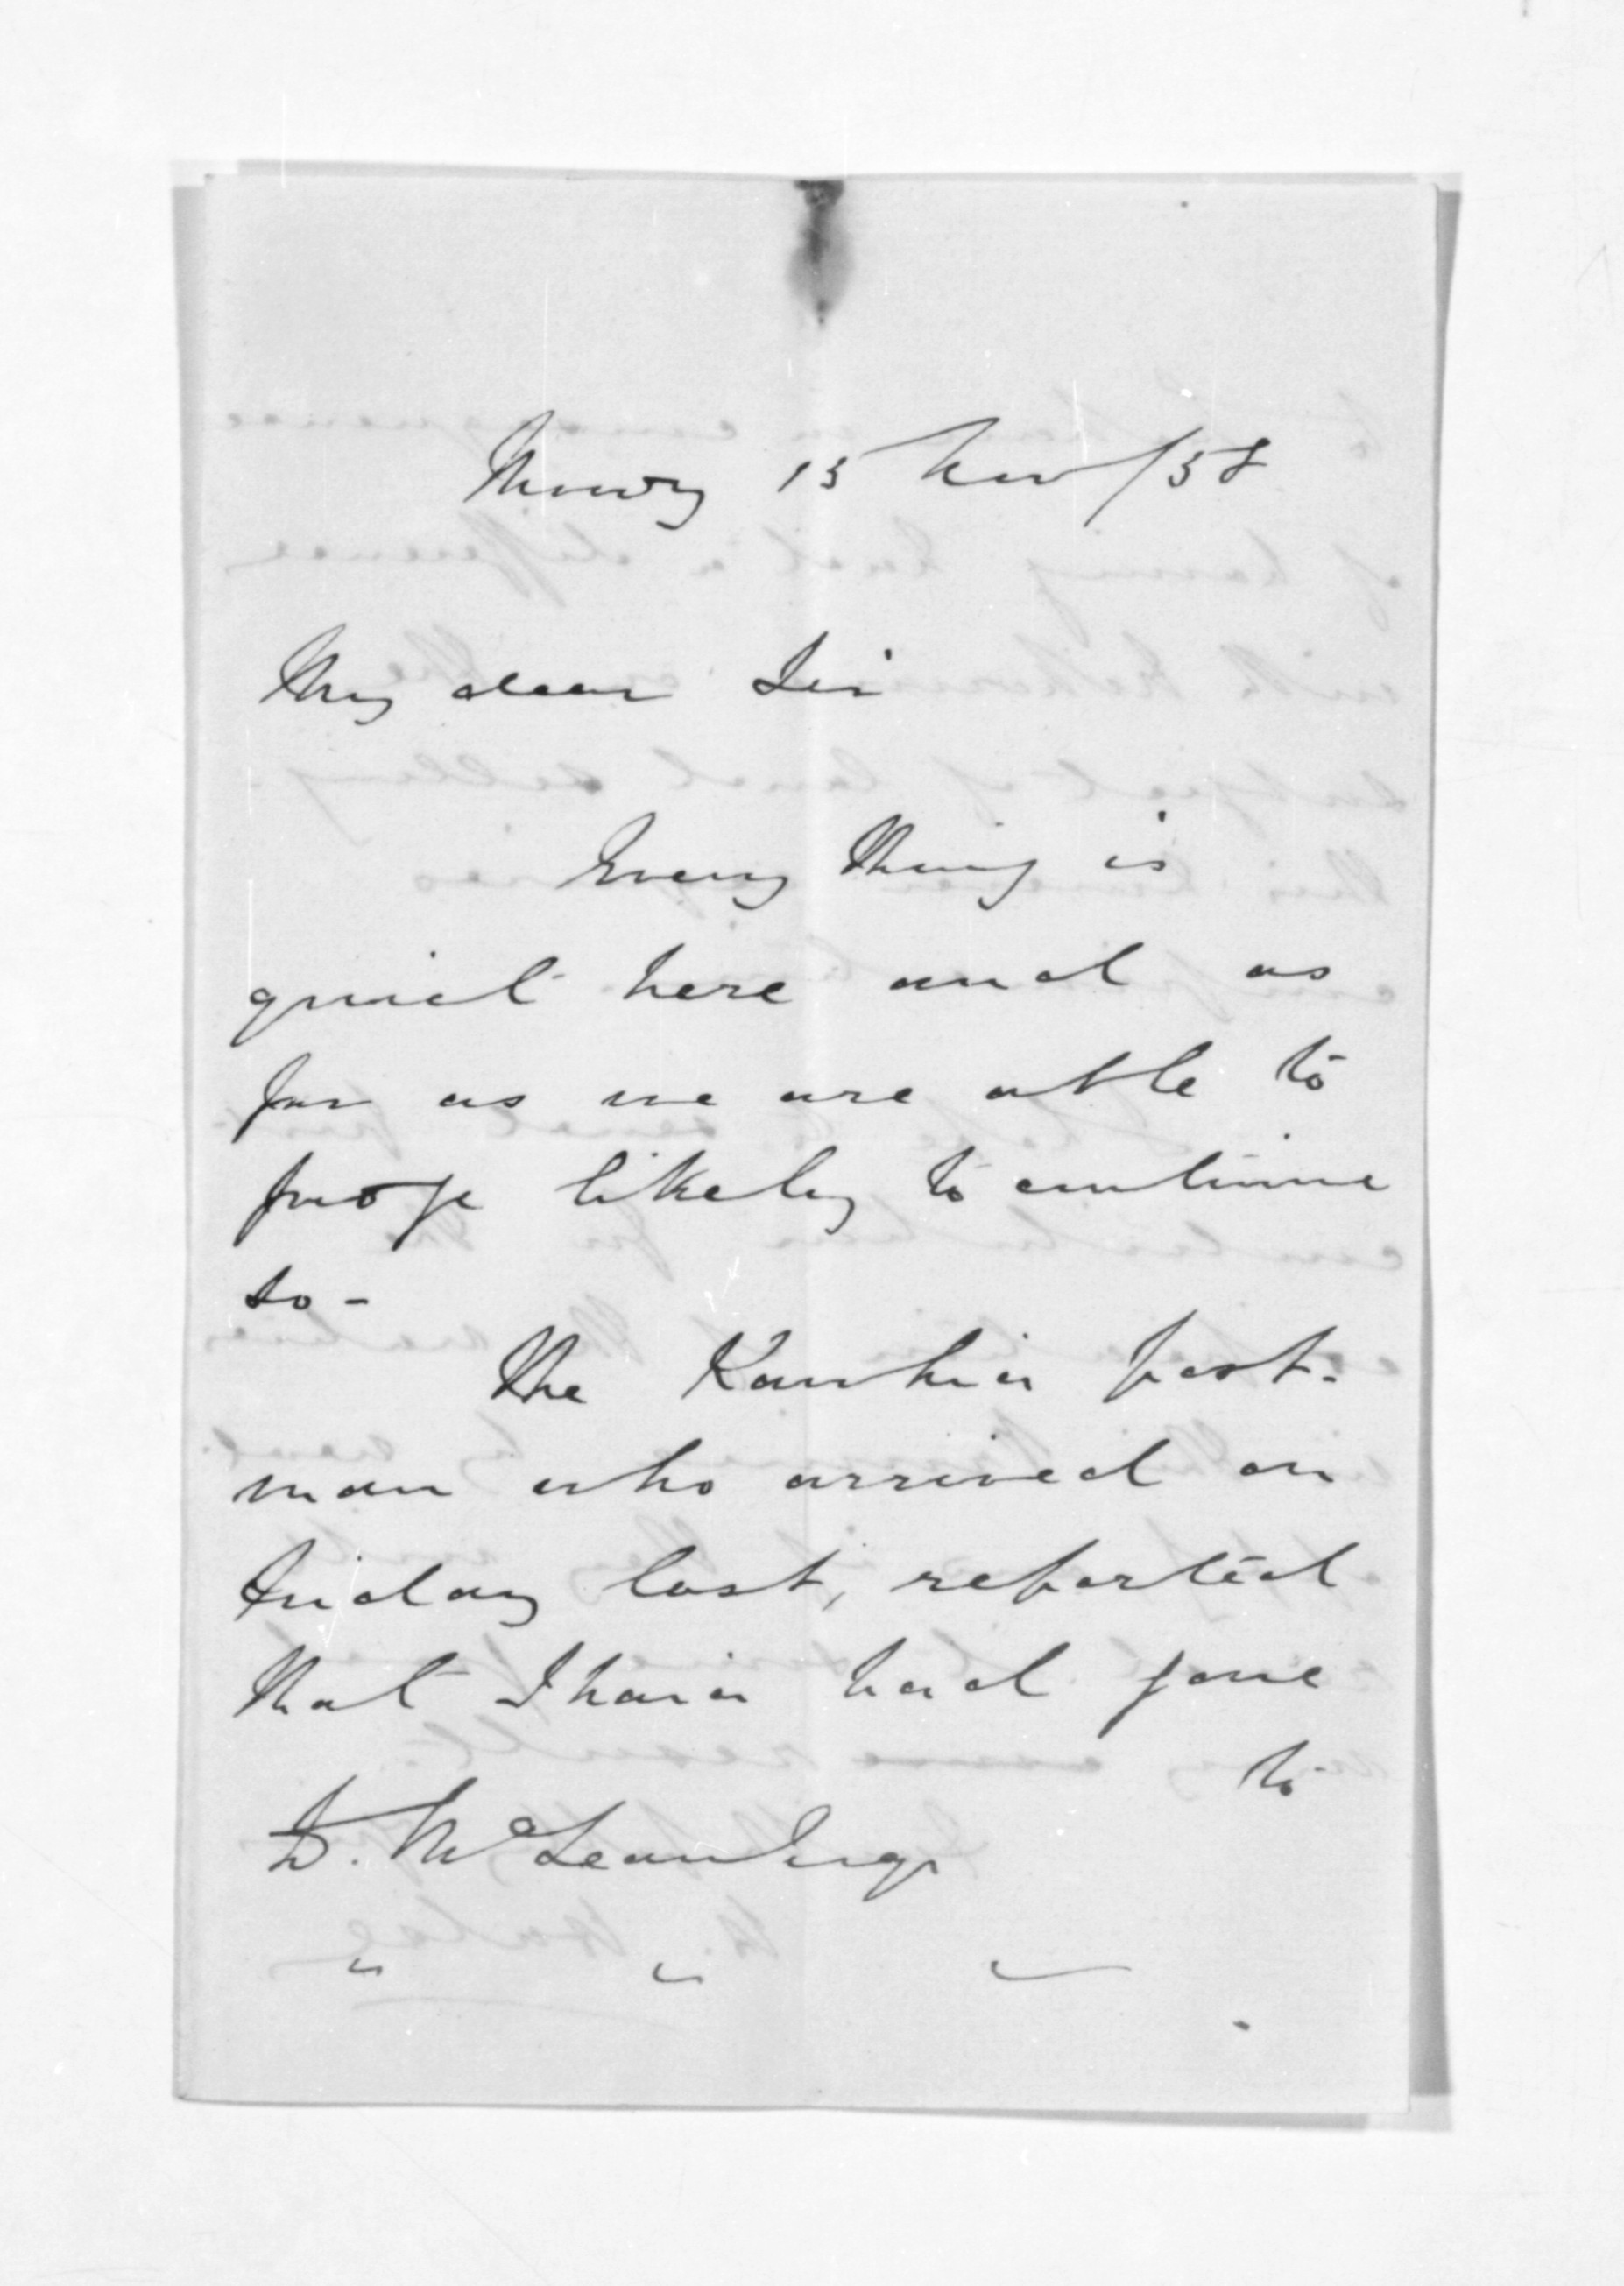 Monday 15 Nov/58
My dear Sir
Every thing is
quiet here and as
far as we are able to
judge likely to continue
so -
The Kawhia post-
man who arrived on
Friday last, reported
that Ihaia had gone
to
D. McLean Esqr
" " "